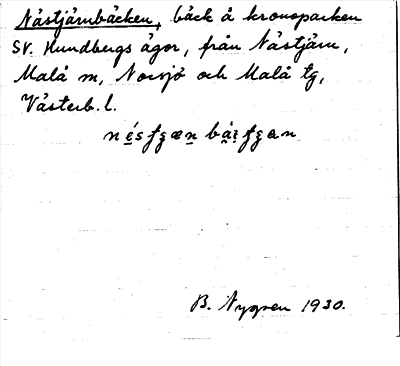 Nästjärnbäcken, bäck å kronoparken
SV. Hundbergs ägor, från Nästjärn,
Malå sn, Norsjö och Malå tg,
Västerb. l.
B. Nygren 1930.